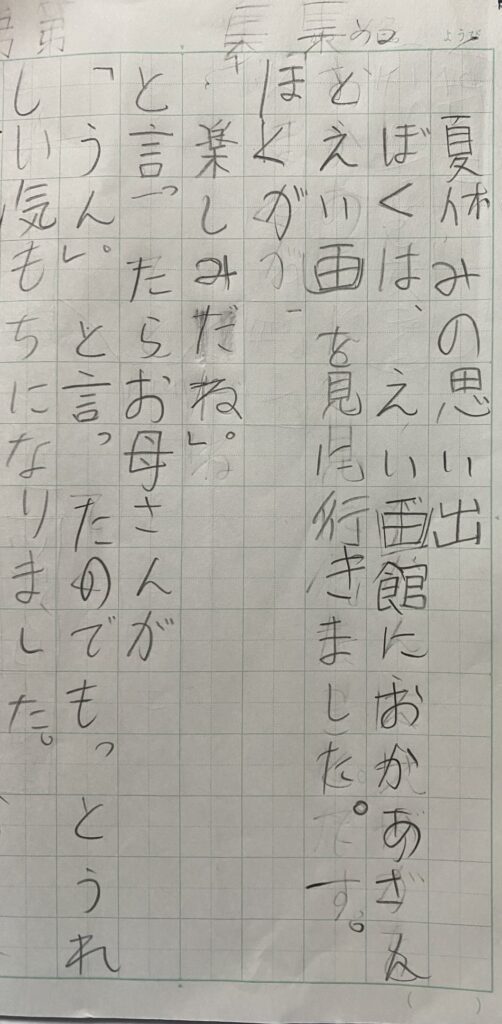 夏休みの思い出
ぼくは、えい画館におかあざん
とえい画を見に行きました。す。
ほくが
「楽しみだね」。
と言ったらお母さんが
「うん」。と言ったのでもっとうれ
しい気もちになりました。